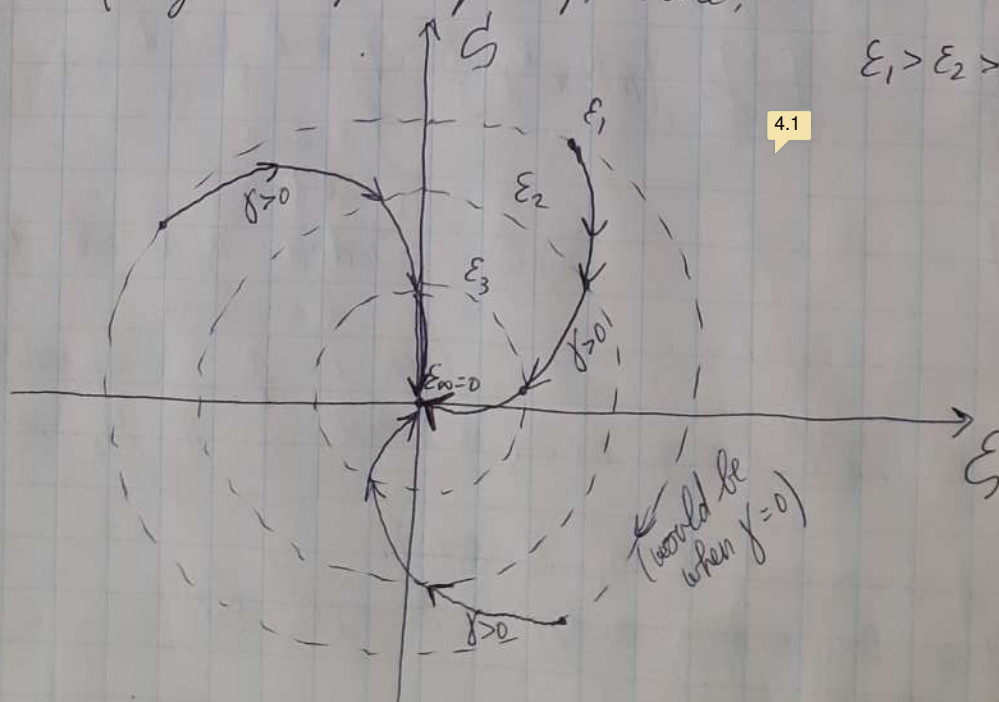 ζ
ε₁ > ε₂ >
4.1
ε₁
ε₂
γ>0
ε₃
γ>0
ε∞=0
ξ
(would be
when γ=0)
γ>0